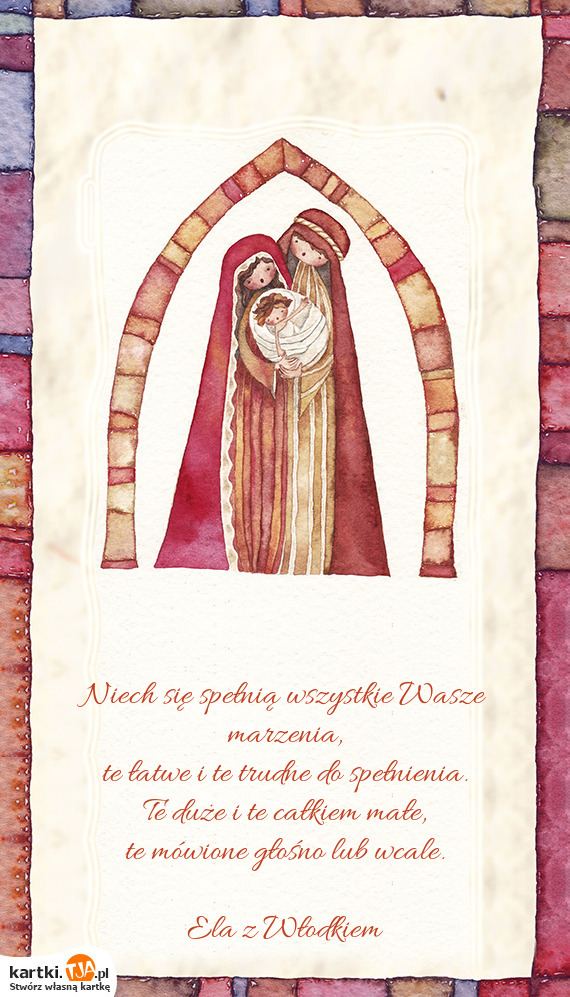 Niech się spełnią wszystkie Wasze
marzenia,
te łatwe i te trudne do spełnienia.
Te duże i te całkiem małe,
te mówione głośno lub wcale.
Ela z Włodkiem
kartki.TJA.pl
Stwórz własną kartkę